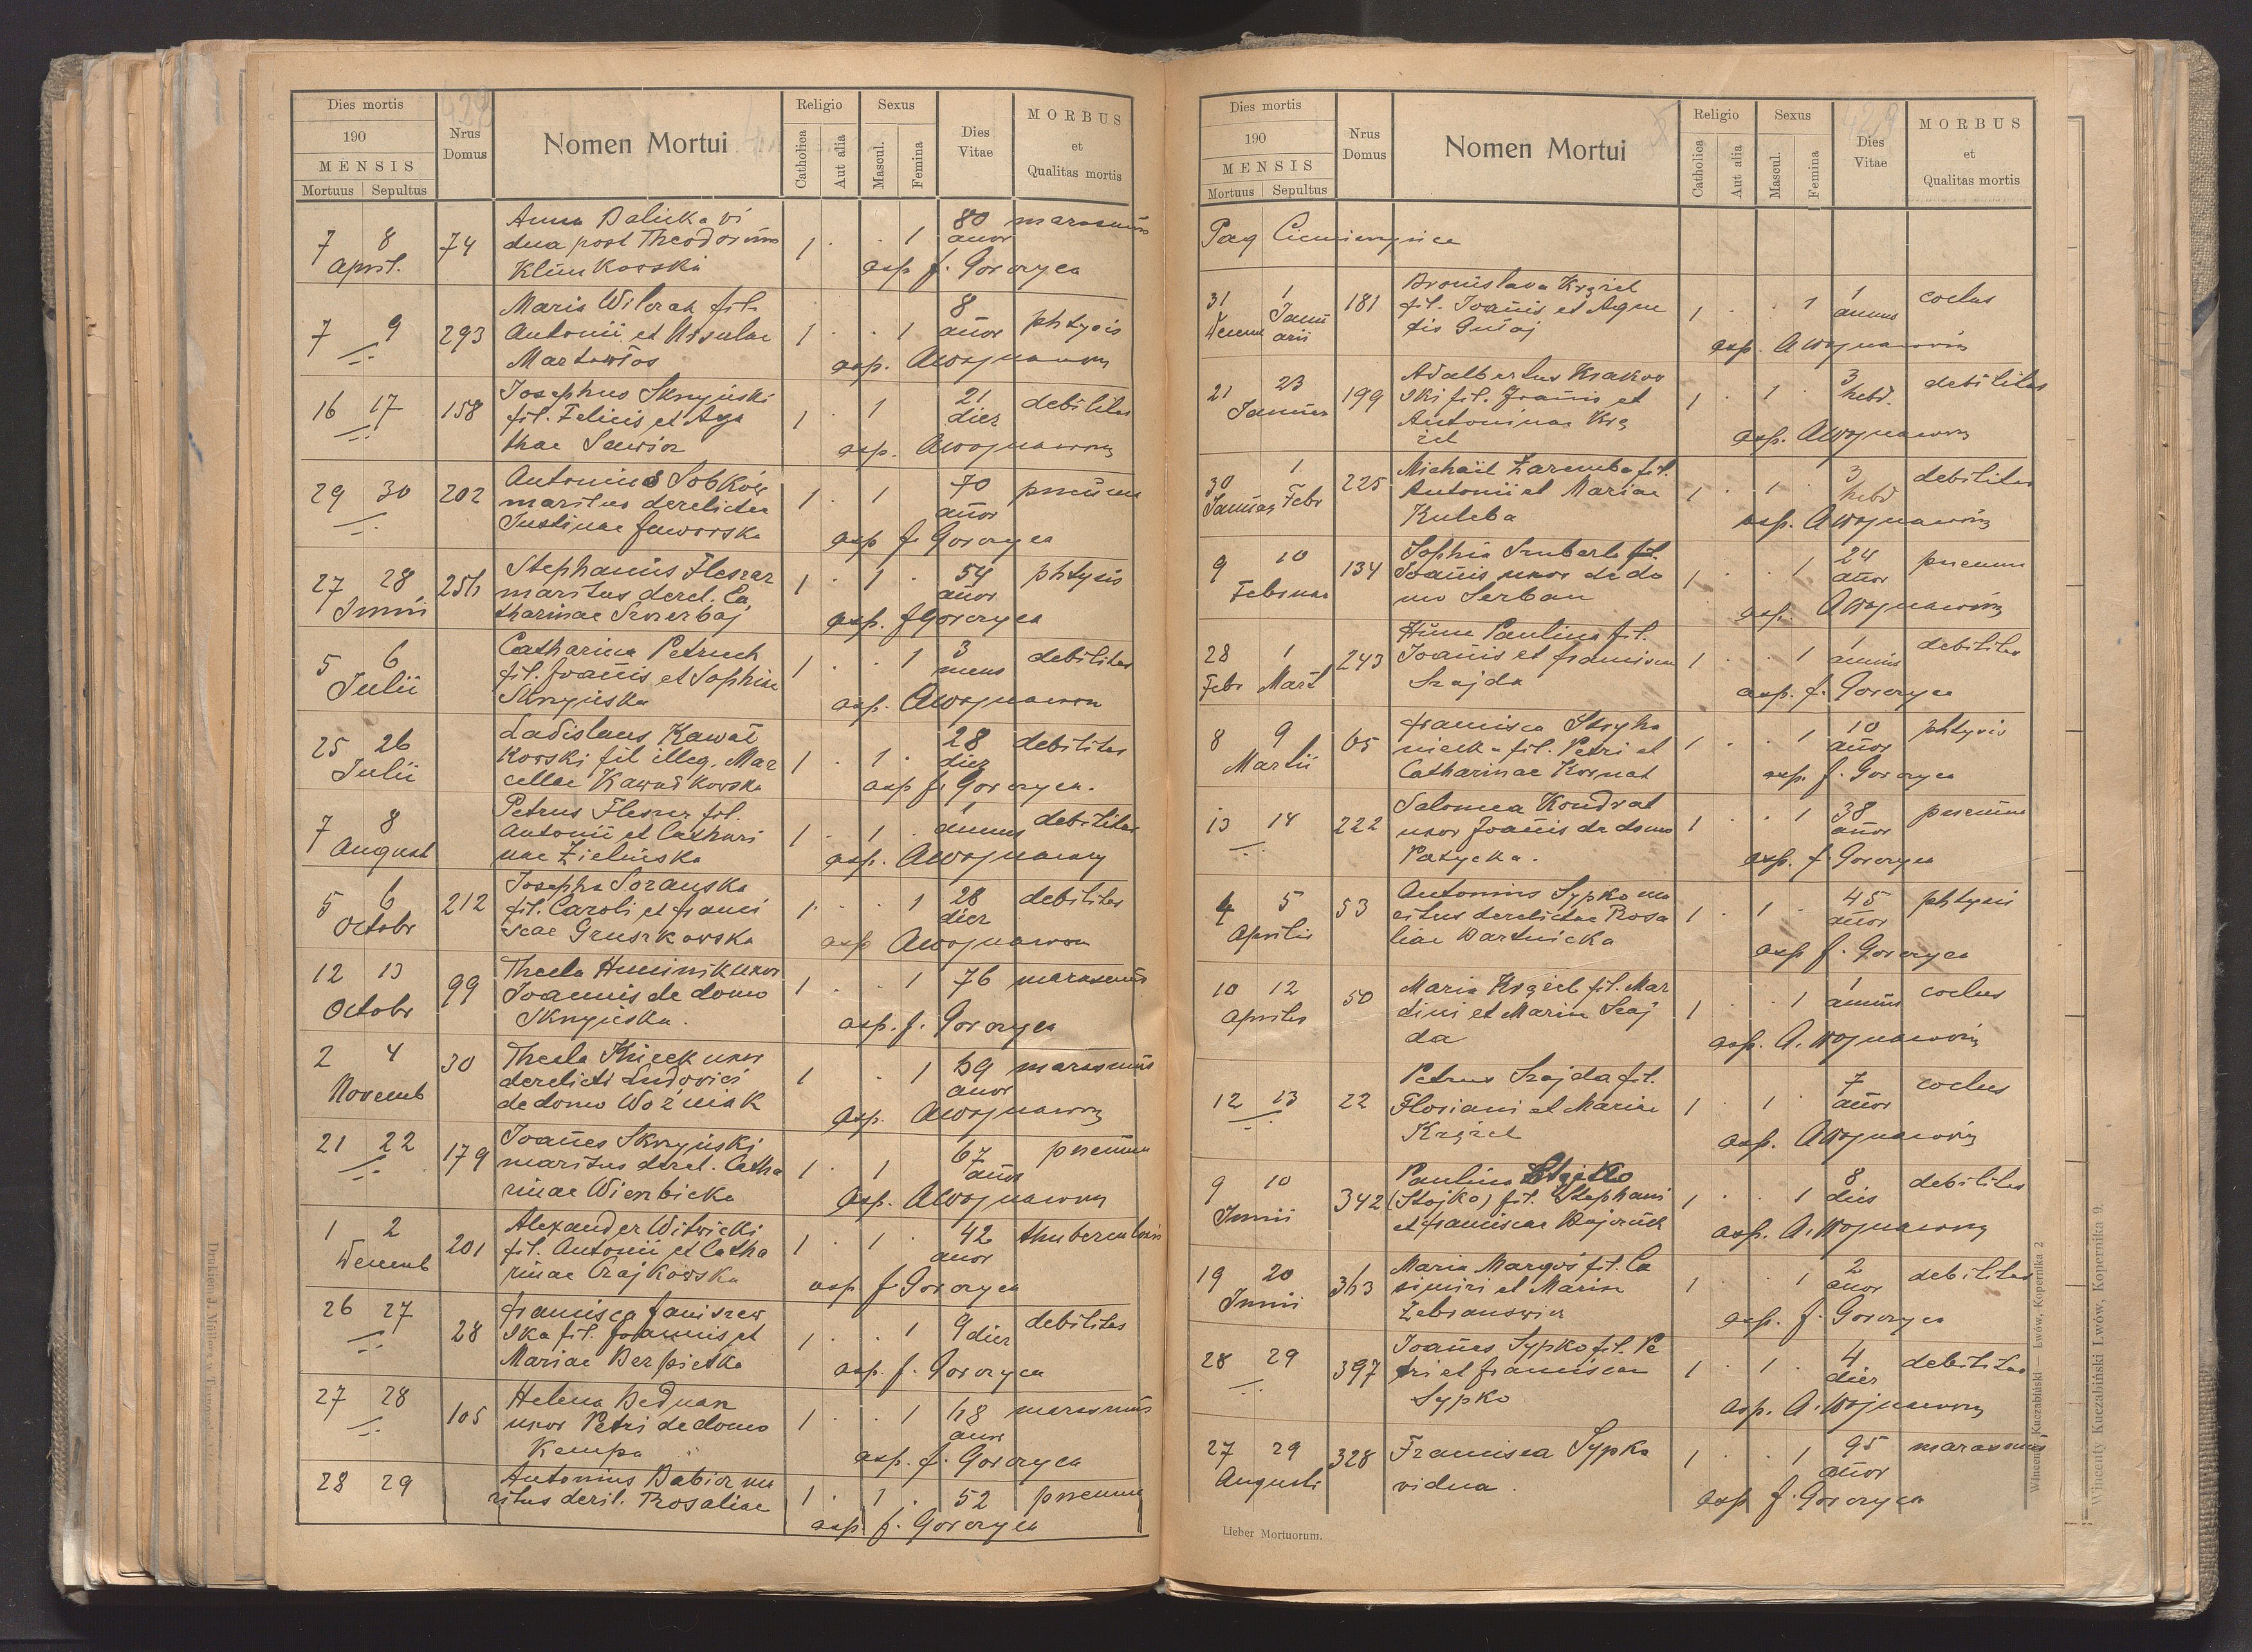 Dies mortis
190
MENSIS
Mortuus Sepultus
Nrus Domus
Nomen Mortui
Religio
Catholica
Aut alia
Sexus
Mascul.
Femina
Dies Vitae
MORBUS
et
Qualitas mortis
428
7 8 April. 74
Anna Balicka vi
dua post Theodorum
Klimkowski
1 . . 1 80 anor marasmus
asp f. Gorczyca
7 9 -:- 293
Maria Wilczak fil.
Antonii et Ursulae
Martowłos
1 . . 1 8 anor phtysis
asp. AWojnarow
16 17 -:- 158
Josephus Skrzyński
fil. Felicis et Aga
thae
1 . 1 21 dier debilitas
asp. AWojnarow
29 30 -:- 202
Antonius Sobków
maritus derelictae
Justinae Jaworska
1 . 1 70 anor pneum
asp f. Gorczyca
27 28 Junii
Stephanus Fleszar
maritus derel. Ca
tharinae Szczerbaj
1 . 1 . 54 anor phtysis
asp. f Gorczyca
5 6 Julii
Catharina Petruch
fil. Joanis et Sophiae
Skrzyńska
1 . . 1 3 mens debilitas
asp. AWojnarow
25 26 Julii
Ladislaus Kawał
kowski fil illeg. Mar
cellae Kawałkowska
1 . 1 . 28 dier debilitas
asp f. Gorczyca.
7 8 August
Petrus Fleszar fil.
Antonii et Cathari
nae Zielińska
1 . 1 . 1 annus debilitas
asp. AWojnarow
5 6 Octobr 212
Josepha Soranska
fil. Caroli et franci
scae Gruszkowska
1 . . 1 28 dier debilitas
asp AWojnarow
12 13 Octobr 99
Thecla uxor
Joannis de domo
Skrzyńska.
1 . . 1 76 marasmus
asp. f. Gorczyca
2 4 Novemb 30
Thecla uxor
derelicti Ludovici
de domo Woźniak
1 . 1 anor marasmus
asp. AWojnarow
21 22 -:- 179
Joanes Skrzyński
maritus derel. Catha
rinae Wierzbicka
1 . 1 67 anor pneumn
asp. AWojnarow
1 2 Decemb 201
Alexander Witwicki
fil. Antonii et Catha
rinae Czajkowska
1 . 1 . 42 anor
asp f Gorczyca
26 27 -:- 28
francisca Janiszew
ska fil. Joannis et
Mariae
1 . . 1 9 dier debilitas
asp. f. Gorczyca
27 28 -:- 105
Helena Bednarz
uxor Petri de domo
Kempa
1 . . 1 anor marasmus
asp. f. Gorczyca
28 29
Antonius ma
ritus derel. Rosaliae
1 . 1 . 52 pneumn
asp f. Gorczyca
Dies mortis
190
MENSIS
Mortuus Sepultus
Nrus Domus
Nomen Mortui
Religio
Catholica
Aut alia
Sexus
Mascul.
Femina
Dies Vitae
MORBUS
et
Qualitas mortis
Pag
31 Decemb 1 Janu arii 181
Bronislava Krzret
fil. Joanis et Agne
tis
1 . . 1 1 annus coctus
asp. AWojnarowicz
21 23 Januar 199
Adalbertus Krakow
ski fil. Joanis et
Antoninae
1 . 1 . 3 hebd. debilitas
asp. AWojnarow
30 Januar 1 Febr 225
Michaël Zaremba fil.
Antonii et Mariae
Kuleba
1 . 1 . 3 hebd debilitas
asp. AWojnarowicz
9 10 Februar 134
Sophia fil.
Joanis uxor de do
mo Serban
1 . . 1 24 anor pneumn
asp. AWojnarowicz
28 Febr 1 Mart 243
Paulina fil.
Joanis et franciscae
Szajda
1 . . 1 1 annus debilitas
asp. f. Gorczyca
8 9 Martii 65
francisca
fil. Petri et
Catharinae Kornat
1 . . 1 10 anor phtysis
asp. f. Gorczyca
13 14 -:- 222
Salomea Kondrat
uxor Joanis de domo
Patycka.
1 . . 1 38 anor pneumn
asp. f. Gorczyca
4 5 Aprilis 53
Antonius Sypko ma
ritus derelictae Rosa
liae Bartnicka
1 . 1 . 45 anor phtysis
asp f. Gorczyca
10 12 Aprilis 50
Maria fil. Mar
tini et Mariae Szaj
da
1 . . 1 1 annus coctus
asp. A. Wojnarowicz
12 13 -:- 22
Petrus Szajda fil.
Floriani et Mariae
1 . 1 . 7 anor coctus
asp. AWojnarowicz
9 10 Junii 342
Paulina
(Stojko) fil. Stephani
et franciscae
1 . . 1 8 dies debilitas
asp. A. Wojnarow
19 20 Junii
Maria Margos fil. Ca
simiri et Mariae
1 . . 1 2 anor debilitas
asp. f. Gorczyca
28 29 -:- 397
Joanes Sypko fil. Pe
tri et franciscae
Sypko
1 . 1 . 4 dier debilitas
asp. A. Wojnarow
27 29 Augusti 328
Francisca Sypko
vidua.
1 . . 1 95 anor marasmus
asp f. Gorczyca
Lieber Mortuorum.
Wincenty Kuczabiński — Lwów, Kopernika 2
Wincenty Kuczabiński Lwów, Kopernika 9.